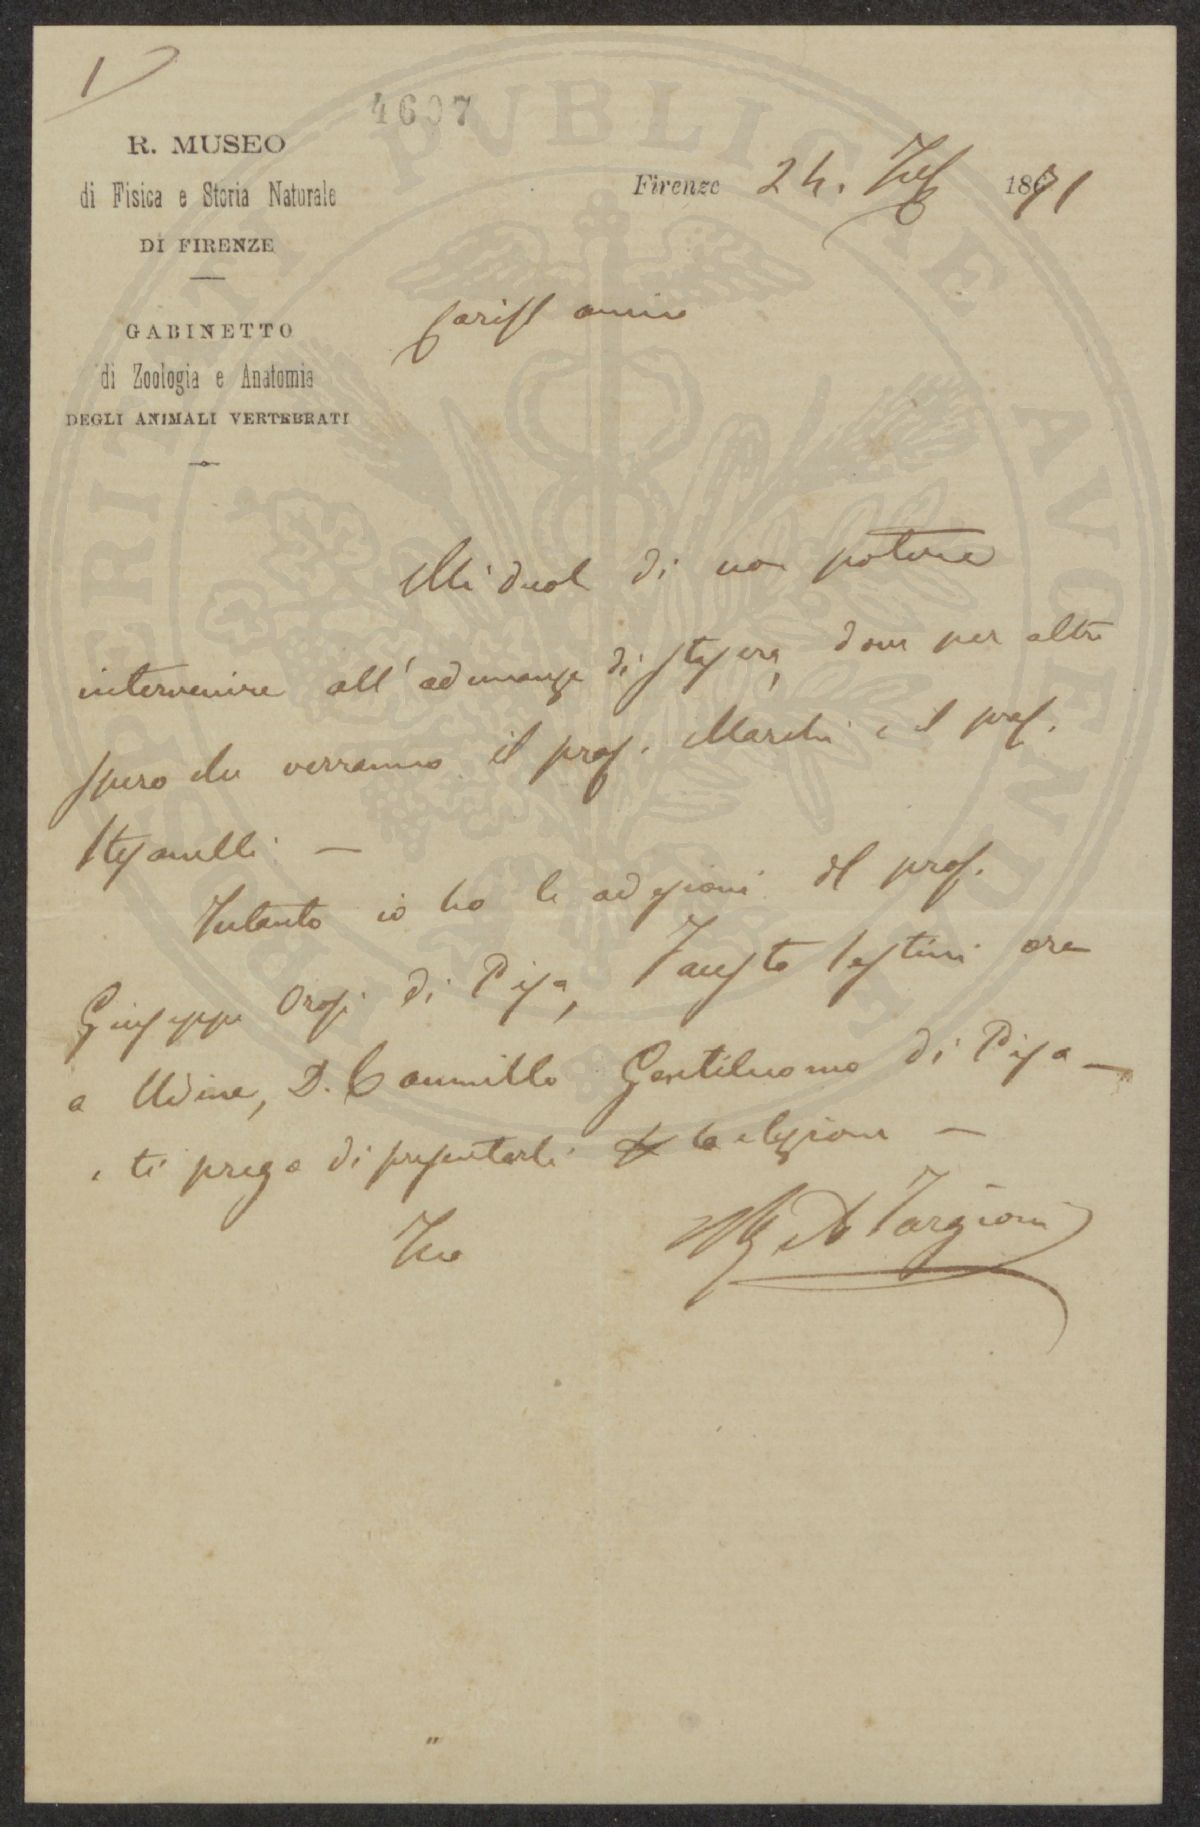 1
4607
R. MUSEO
di Fisica e Storia Naturale
DI FIRENZE
GABINETTO
di Zoologia e Anatomia
DEGLI ANIMALI VERTEBRATI
Firenze 24. 1871
Cariss amico
Mi duole di non potere
intervenire all'adunanza di stasera, dove per altro
spero che verranno il prof. Marchi e il prof.
Stefanelli —
Intanto io ho le adesioni del prof.
Giuseppe Orosi di Pisa, Fausto Sestini ora
a Udine, D. Cammillo Gentiluomo di Pisa —
e ti prego di presentarli la elezione —
Tuo
Targioni
PROSPERITATI PVBLICAE AVGENDAE